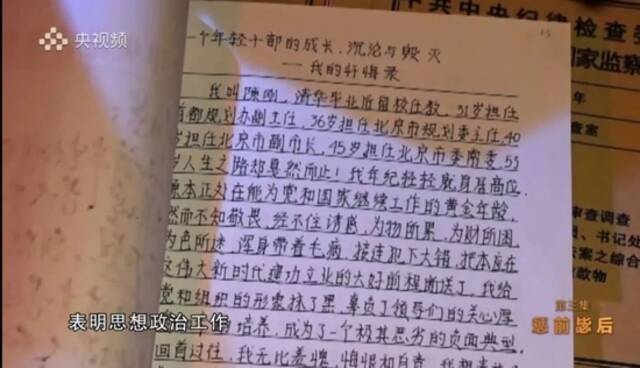 央视频
中共中央纪律检查委
国家监察
一个年轻干部的成长、沉沦与毁灭
——我的忏悔录
我叫陈刚，清华毕业后留校任教，31岁担任
首都规划办副主任，36岁担任北京市规划委主任，40
岁担任北京市副市长，45岁担任北京市委常委，53
岁人生之路却戛然而止！我年纪轻轻就身居高位，
原本正处在能为党和国家继续工作的黄金年龄，
然而不知敬畏，经不住诱惑，为物所累，为财所困，
为色所迷，浑身带着毛病，接连犯下大错，把本应在
这伟大新时代建功立业的大好前程断送了，我给
党和组织的形象抹了黑，辜负了领导们的关心厚
培养，成为了一个极其恶劣的负面典型，
回首过往，我无比羞愧、悔恨和自责，我想
年
查室
审查调查
、书记处
法案之综合
款物
表明思想政治工作
第三集
惩前毖后